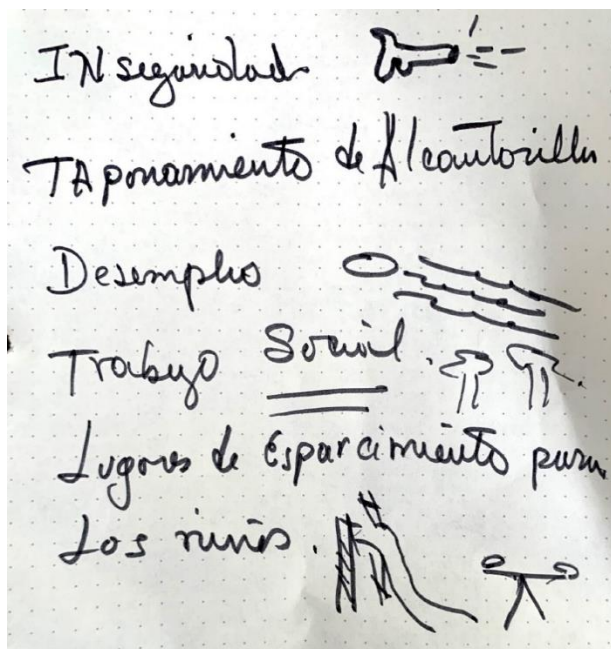 INseguridad
TAponamiento de Alcantarilla
Desempleo
Trabajo Social.
Lugares de Esparcimiento para
Los niños.